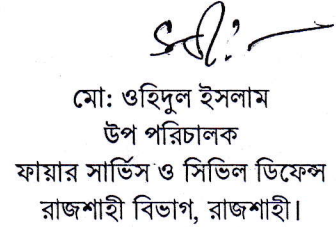 মো: ওহিদুল ইসলাম
উপ পরিচালক
ফায়ার সার্ভিস ও সিভিল ডিফেন্স
রাজশাহী বিভাগ, রাজশাহী।